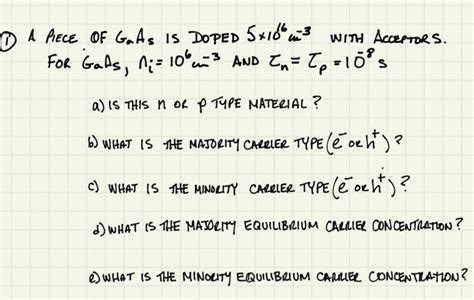 ① A PIECE OF GaAs IS DOPED 5×10¹⁶ cm⁻³ WITH ACCEPTORS.
FOR GaAs, nᵢ = 10⁶ cm⁻³ AND τₙ = τₚ = 10⁻⁸ s
a) IS THIS n OR p TYPE MATERIAL?
b) WHAT IS THE MAJORITY CARRIER TYPE (e⁻ or h⁺)?
c) WHAT IS THE MINORITY CARRIER TYPE (e⁻ or h⁺)?
d) WHAT IS THE MAJORITY EQUILIBRIUM CARRIER CONCENTRATION?
e) WHAT IS THE MINORITY EQUILIBRIUM CARRIER CONCENTRATION?